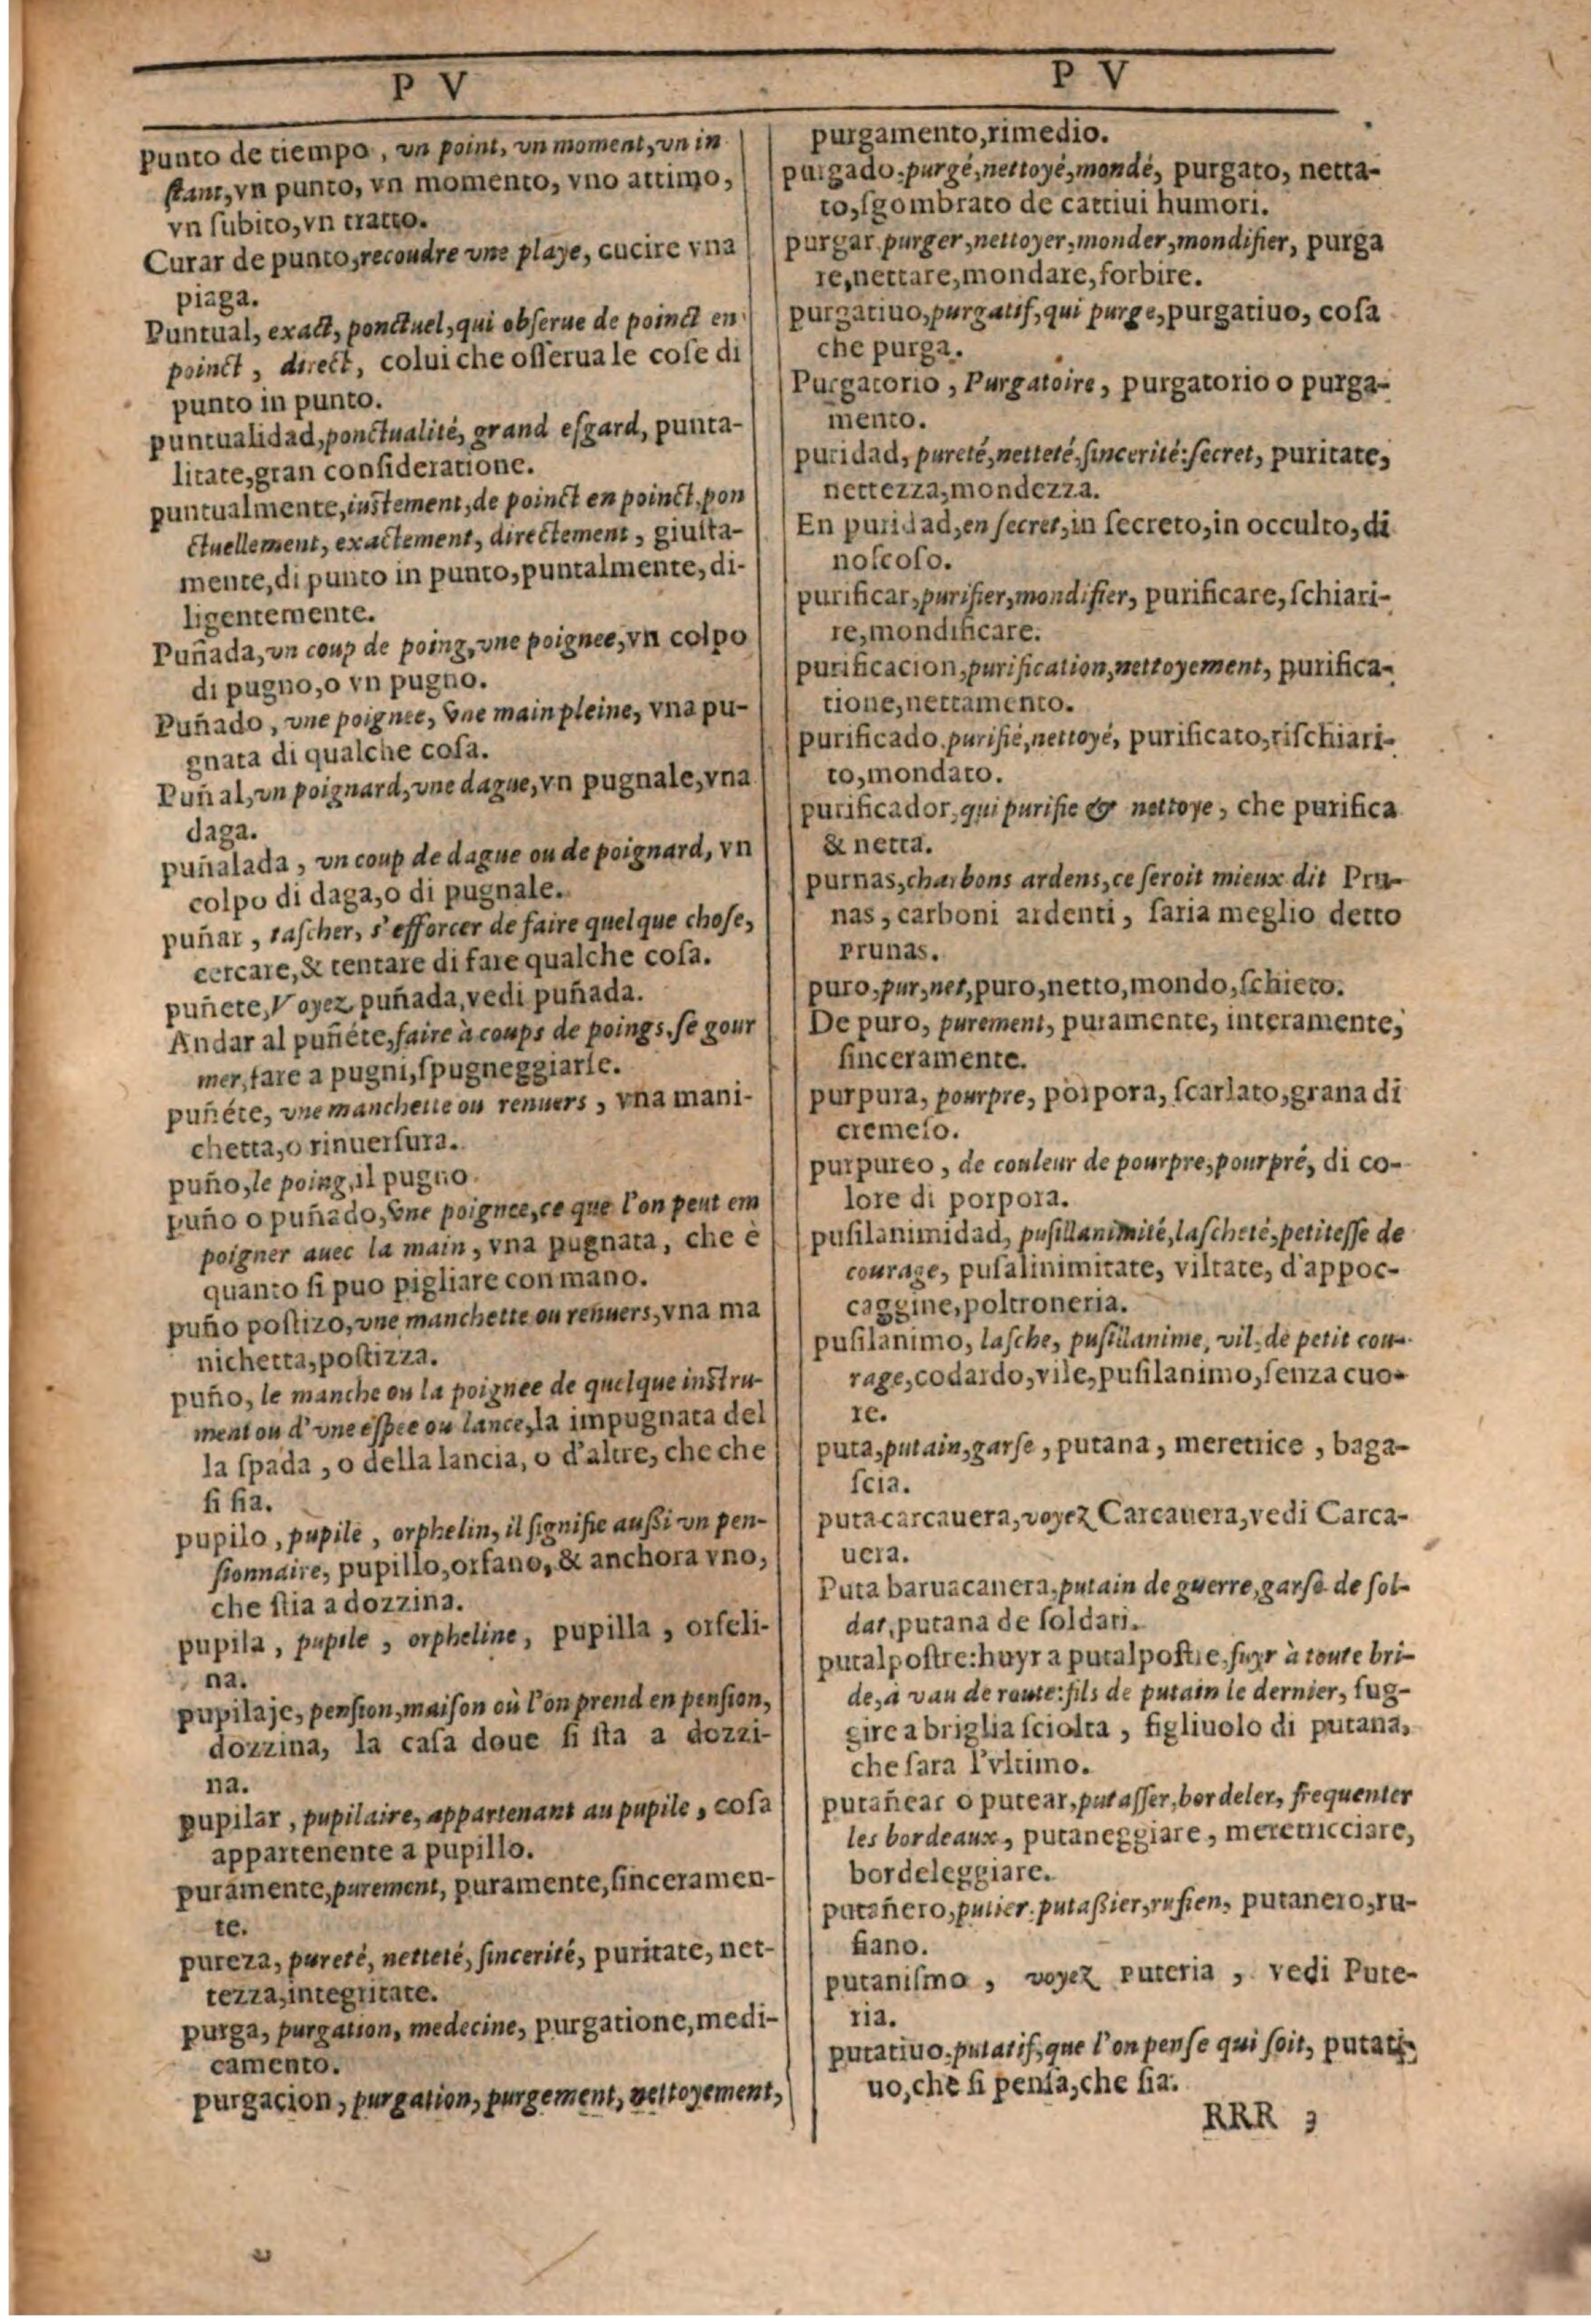 P V
punto de tiempo, vn point, vn moment, vn in
ſtant, vn punto, vn momento, vno attimo,
vn ſubito, vn tratto.
Curar de punto, recoudre vne playe, cucire vna
piaga.
Puntual, exact, ponctuel, qui obſerue de poinct en
poinct, direct, colui che oſſerua le coſe di
punto in punto.
puntualidad, ponctualité, grand eſgard, punta-
litate, gran conſideratione.
puntualmente, iuſtement, de poinct en poinct, pon
ctuellement, exactement, directement, giuſta-
mente, di punto in punto, puntalmente, di-
ligentemente.
Puñada, vn coup de poing, vne poignee, vn colpo
di pugno, o vn pugno.
Puñado, vne poignee, vne main pleine, vna pu-
gnata di qualche coſa.
Puñal, vn poignard, vne dague, vn pugnale, vna
daga.
puñalada, vn coup de dague ou de poignard, vn
colpo di daga, o di pugnale.
puñar, taſcher, s'efforcer de faire quelque choſe,
cercare, & tentare di fare qualche coſa.
puñete, Voyez puñada, vedi puñada.
Andar al puñéte, faire à coups de poings, ſe gour
mer, fare a pugni, ſpugneggiarſe.
puñéte, vne manchette ou renuers, vna mani-
chetta, o rinuerſura.
puño, le poing, il pugno.
puño o puñado, vne poignee, ce que l'on peut em
poigner auec la main, vna pugnata, che è
quanto ſi puo pigliare con mano.
puño poſtizo, vne manchette ou renuers, vna ma
nichetta, poſtizza.
puño, le manche ou la poignee de quelque inſtru-
ment ou d'vne eſpee ou lance, la impugnata del
la ſpada, o della lancia, o d'altre, che che
ſi ſia.
pupilo, pupile, orphelin, il ſignifie auſſi vn pen-
ſionnaire, pupillo, orfano, & anchora vno,
che ſtia a dozzina.
pupila, pupile, orpheline, pupilla, orfeli-
na.
pupilaje, penſion, maiſon où l'on prend en penſion,
dozzina, la caſa doue ſi ſta a dozzi-
na.
pupilar, pupilaire, appartenant au pupile, coſa
appartenente a pupillo.
puramente, purement, puramente, ſinceramen-
te.
pureza, pureté, netteté, ſincerité, puritate, net-
tezza, integritate.
purga, purgation, medecine, purgatione, medi-
camento.
purgacion, purgation, purgement, nettoyement,
P V
purgamento, rimedio.
purgado, purgé, nettoyé, mondé, purgato, netta-
to, ſgombrato de cattiui humori.
purgar, purger, nettoyer, monder, mondifier, purga
re, nettare, mondare, forbire.
purgatiuo, purgatif, qui purge, purgatiuo, coſa
che purga.
Purgatorio, Purgatoire, purgatorio o purga-
mento.
puridad, pureté, netteté, ſincerité: ſecret, puritate,
nettezza, mondezza.
En puridad, en ſecret, in ſecreto, in occulto, di
noſcoſo.
purificar, purifier, mondifier, purificare, ſchiari-
re, mondificare.
purificacion, purification, nettoyement, purifica-
tione, nettamento.
purificado, purifié, nettoyé, purificato, riſchiari-
to, mondato.
purificador, qui purifie & nettoye, che purifica
& netta.
purnas, charbons ardens, ce ſeroit mieux dit Pru-
nas, carboni ardenti, ſaria meglio detto
Prunas.
puro, pur, net, puro, netto, mondo, ſchieto.
De puro, purement, puramente, interamente,
ſinceramente.
purpura, pourpre, porpora, ſcarlato, grana di
cremeſo.
purpureo, de couleur de pourpre, pourpré, di co-
lore di porpora.
puſilanimidad, puſillanimité, laſcheté, petiteſſe de
courage, puſalinimitate, viltate, d'appoc-
caggine, poltroneria.
puſilanimo, laſche, puſillanime, vil, de petit cou-
rage, codardo, vile, puſilanimo, ſenza cuo-
re.
puta, putain, garſe, putana, meretrice, baga-
ſcia.
puta carcauera, voyez Carcauera, vedi Carca-
uera.
Puta baruacanera, putain de guerre, garſe de ſol-
dat, putana de ſoldati.
putalpoſtre: huyr a putalpoſtre, fuyr à toute bri-
de, à vau de route: fils de putain le dernier, fug-
gire a briglia ſciolta, figliuolo di putana,
che ſara l'vltimo.
putañear o putear, putaſſer, bordeler, frequenter
les bordeaux, putaneggiare, meretricciare,
bordeleggiare.
putañero, putier, putaſſier, rufien, putanero, ru-
fiano.
putaniſmo, voyez Puteria, vedi Pute-
ria.
putatiuo, putatif, que l'on penſe qui ſoit, putati-
uo, che ſi penſa, che ſia.
RRR 3